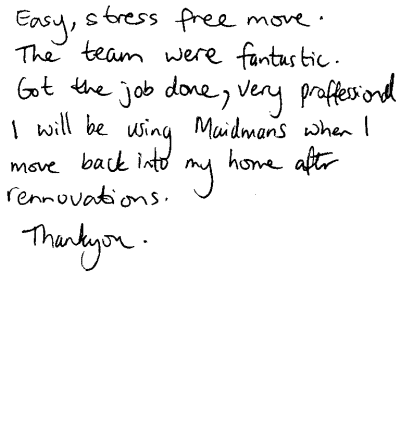 Easy, stress free move.
The team were fantastic.
Got the job done, very proffessional
I will be using Maidmans when I
move back into my home after
rennovations.
Thankyou.